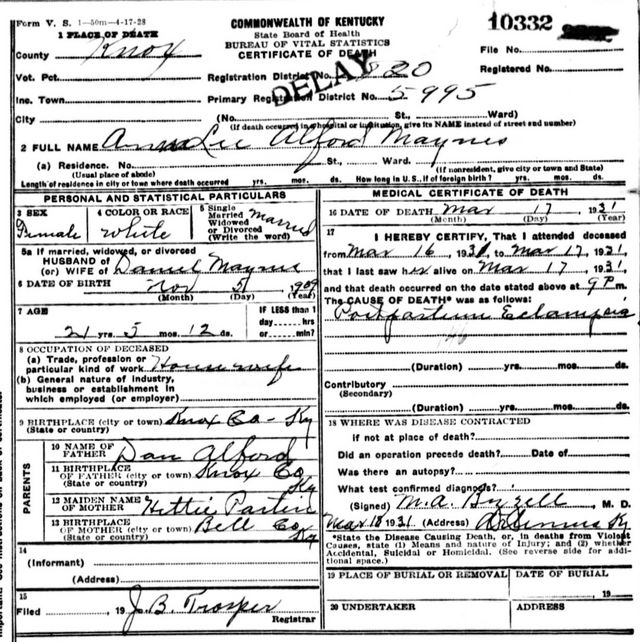 Form V. S. 1—50m—4-17-28
COMMONWEALTH OF KENTUCKY
State Board of Health
BUREAU OF VITAL STATISTICS
CERTIFICATE OF DEATH
10332
1 PLACE OF DEATH
County Knox
File No.
Vot. Pct.
Registration District No. 820
Registered No.
DELAY
Inc. Town
Primary Registration District No. 5995
City (No. St., Ward)
(If death occurred in a hospital or institution, give its NAME instead of street and number)
2 FULL NAME Anna Lee Alford Maynes
(a) Residence. No. St., Ward.
(Usual place of abode) (If nonresident, give city or town and State)
Length of residence in city or town where death occurred yrs. mos. ds. How long in U. S., if of foreign birth? yrs. mos. ds.
PERSONAL AND STATISTICAL PARTICULARS
3 SEX Female
4 COLOR OR RACE White
5 Single Married Widowed or Divorced (Write the word) Married
5a If married, widowed, or divorced
HUSBAND OF
(or) WIFE OF Daniel Maynes
6 DATE OF BIRTH Nov 5 1909
(Month) (Day) (Year)
7 AGE
21 yrs. 5 mos. 12 ds.
IF LESS than 1 day hrs or min?
8 OCCUPATION OF DECEASED
(a) Trade, profession or
particular kind of work Housewife
(b) General nature of industry,
business or establishment in
which employed (or employer)
9 BIRTHPLACE (city or town) Knox Co - Ky
(State or country)
PARENTS
10 NAME OF FATHER Dan Alford
11 BIRTHPLACE OF FATHER (city or town) Knox Co Ky
(State or country)
12 MAIDEN NAME OF MOTHER Hettie
13 BIRTHPLACE OF MOTHER (city or town) Bell Co Ky
(State or country)
14
(Informant)
(Address)
15
Filed , 19 J. B. Trosper
Registrar
MEDICAL CERTIFICATE OF DEATH
16 DATE OF DEATH Mar 17 1931
(Month) (Day) (Year)
17 I HEREBY CERTIFY, That I attended deceased
from Mar 16, 1931 to Mar 17, 1931,
that I last saw her alive on Mar 17, 1931,
and that death occurred on the date stated above at 9 P m.
The CAUSE OF DEATH* was as follows:
Postpartum Eclampsia
(Duration) yrs. mos. ds.
Contributory
(Secondary)
(Duration) yrs. mos. ds.
18 WHERE WAS DISEASE CONTRACTED
if not at place of death?
Did an operation precede death? Date of
Was there an autopsy?
What test confirmed diagnosis?
(Signed) M. A. , M. D.
Mar 18 1931 (Address) Ky
*State the Disease Causing Death, or, in deaths from Violent
Causes, state (1) Means and nature of Injury; and (2) whether
Accidental, Suicidal or Homicidal. (See reverse side for addi-
tional space.)
19 PLACE OF BURIAL OR REMOVAL
DATE OF BURIAL
19
20 UNDERTAKER
ADDRESS